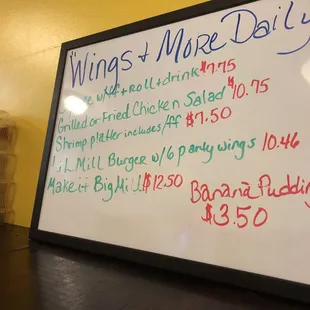 "Wings + More Daily
w/ff + roll + drink $7.75
Grilled or Fried Chicken Salad $10.75
Shrimp platter includes/ff $7.50
Mill Burger w/6 party wings 10.46
Make it Big Mill $12.50
Banana Puddin
$3.50